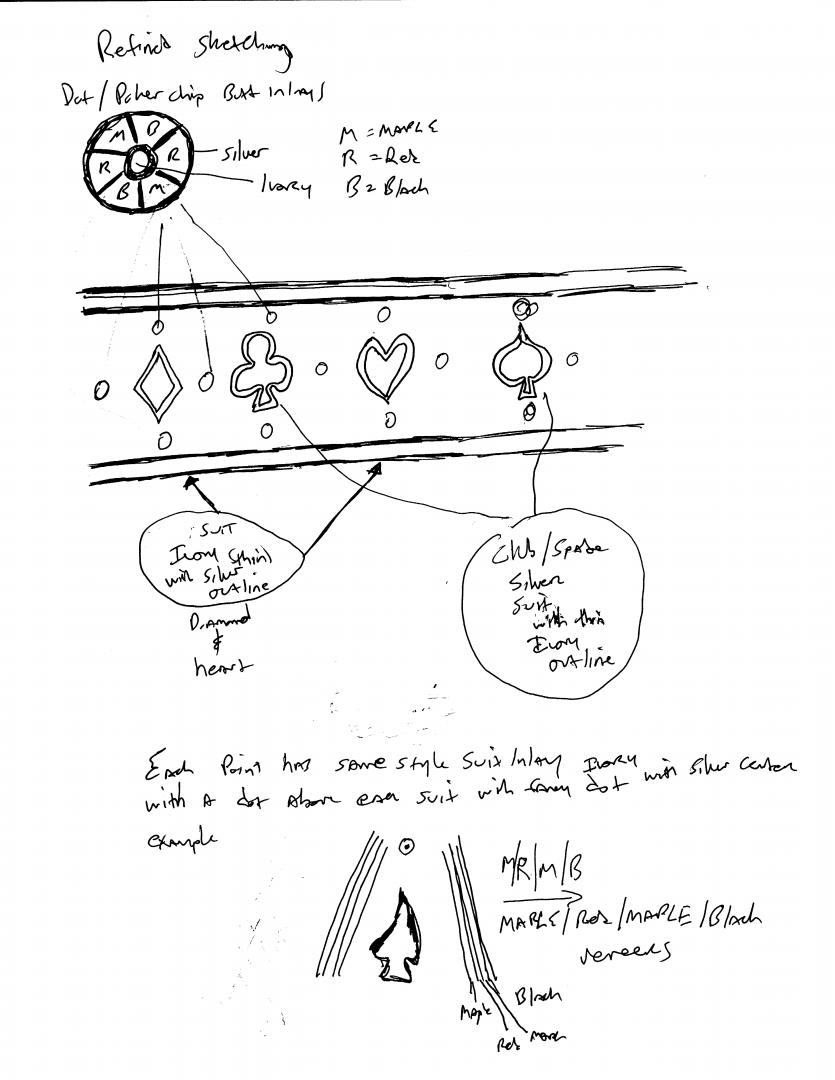 Refined Sketching
Dot/Poker chip Butt Inlays
M B
R R
B M
Silver
Ivory
M = MAPLE
R = Red
B = Black
SUIT
Ivory (thin)
with Silver
outline
Diamond
&
heart
Club/Spade
Silver
Suit
with thin
Ivory
outline
Each Point has same style Suit Inlay Ivory
with A dot Above each suit with fancy dot with Silver Center
example
M/R/M/B
MAPLE/Red/MAPLE/Black
veneers
Maple
Black
Red